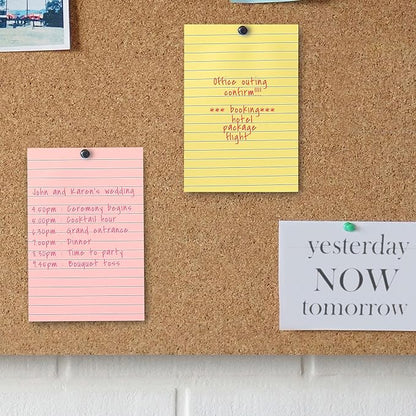 Office outing
confirm!!!
*** Booking***
hotel
package
flight
John and Karen's wedding
4:50pm : Ceremony begins
5:00pm : Cocktail hour
6:30pm : Grand entrance
7:00pm : Dinner
8:30pm : Time to party
9:45pm : Bouquet toss
yesterday
NOW
tomorrow